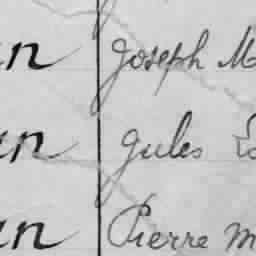 an Joseph M
an Jules
an Pierre M